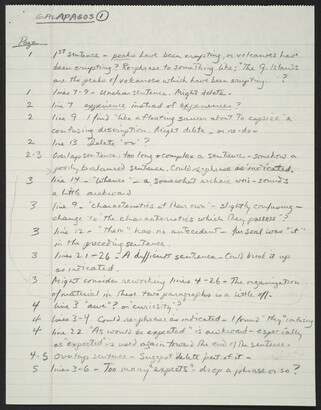 GALAPAGOS 1
Page
1 1st sentence - peaks have been erupting, or volcanoes have
been erupting? Rephrase to something like, "The G. Islands
are the peaks of volcanoes which have been erupting - - - ?
1 lines 7-9 - Unclear sentence. Might delete.
2 line 7 experience instead of experiences?
2 line 9 I find "like a floating saucer about to capsize" a
confusing description. Might delete, or re-do
2 line 13 Delete "or"?
2-3 Overlap sentence: too long & complex a sentence - somehow a
poorly balanced sentence. Could re-phrase as indicated.
3 line 14 - "Whence" - a somewhat archaic word - sounds
a little awkward
3 line 9 - "characteristics of their own" - slightly confusing -
change to "the characteristics which they possess"?
3 line 12 - "them" has no antecedent - fur seal was "it"
in the preceding sentence.
3 lines 21-26 - A difficult sentence - Could break it up
as indicated.
3 Might consider reworking lines 4-26 - The organization
of material in these two paragraphs is a little off.
4 line 3 "awe"? or curiosity?
4 lines 3-4 Could re-phrase as indicated - I found "they" confusing
4 line 22 "As would be expected" is awkward - especially
as "expected" is used again toward the end of the sentence.
4-5 Overlap sentence - Suggest delete part of it -
5 lines 3-6 - Too many "expects" - drop a phrase or so?